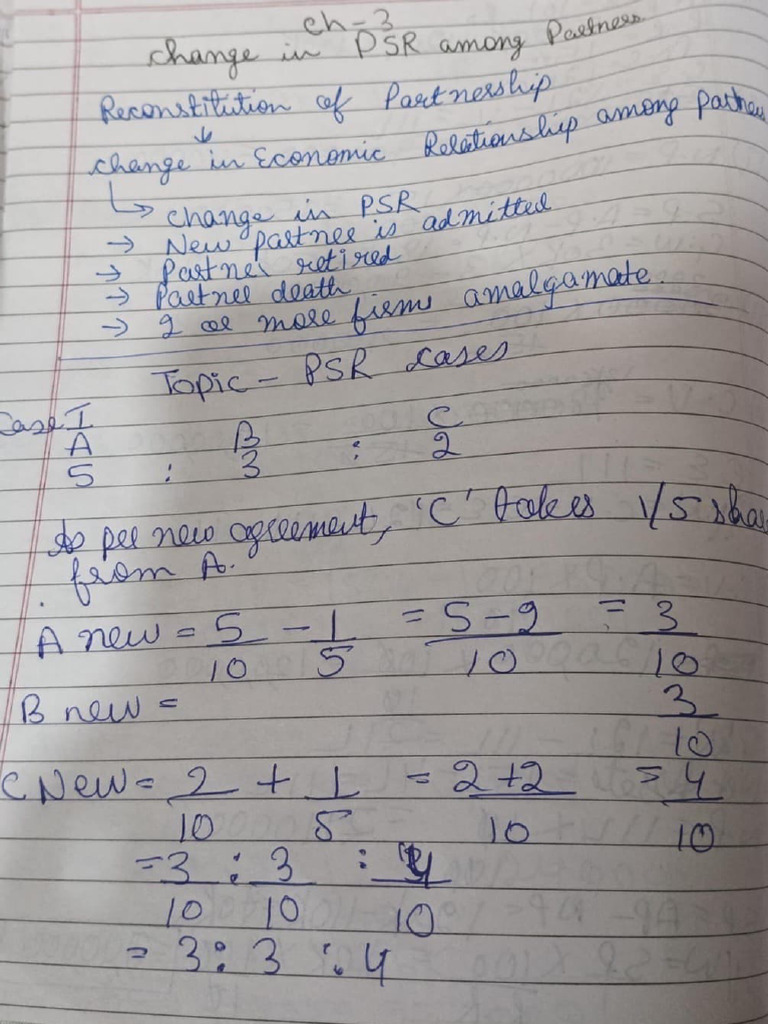 ch-3
change in PSR among Partners
Reconstitution of Partnership
↓
change in Economic Relationship among partners
↳ change in PSR
→ New partner is admitted
→ Partner retired
→ Partner death
→ 2 or more firms amalgamate.
Topic - PSR cases
Case I
A B C
5 : 3 : 2
As per new agreement, 'C' takes 1/5 share
from A.
A new = 5/10 - 1/5 = 5-2/10 = 3/10
B new = 3/10
C New = 2/10 + 1/5 = 2+2/10 = 4/10
= 3/10 : 3/10 : 4/10
= 3 : 3 : 4